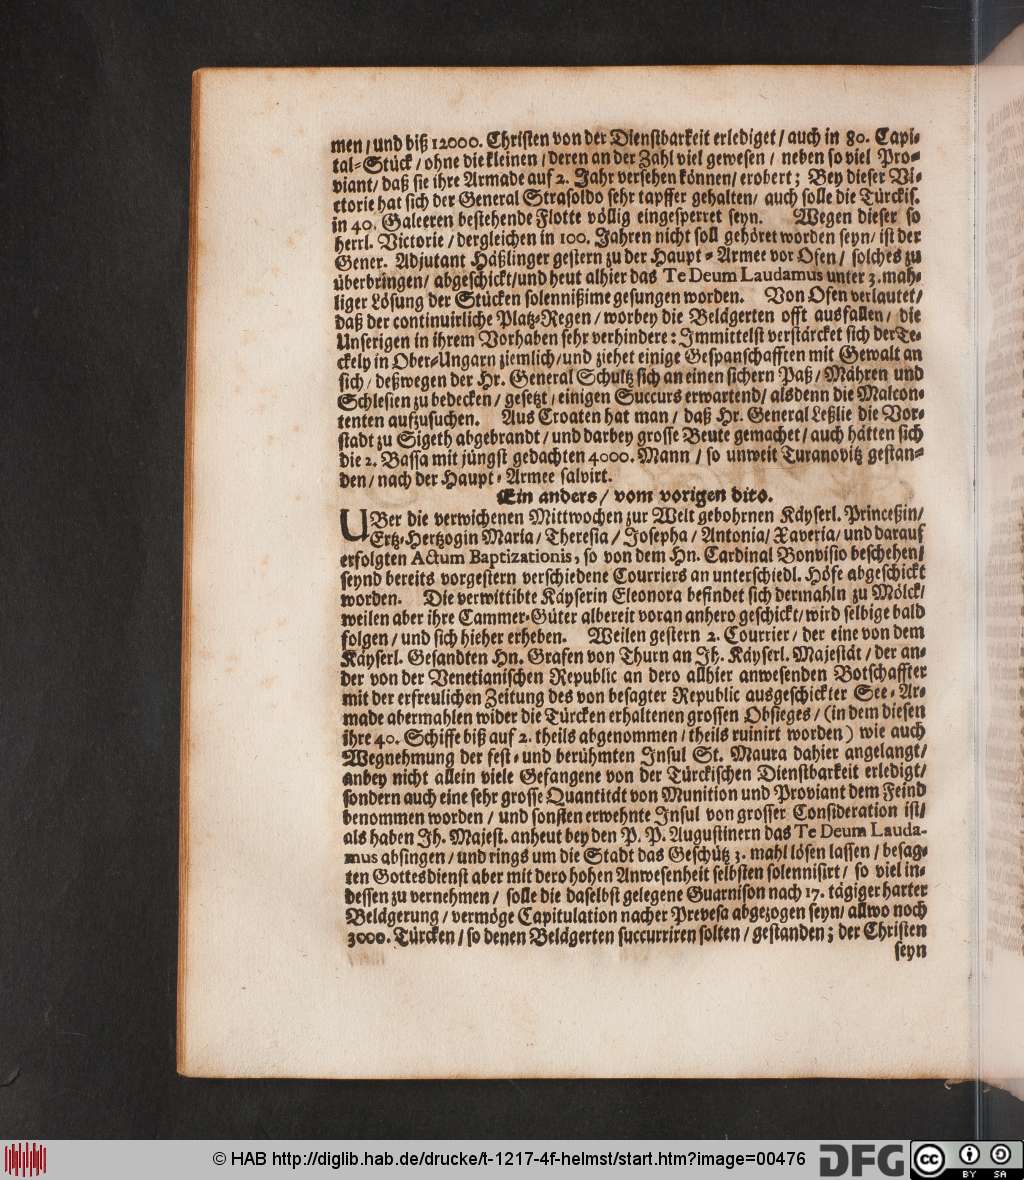 men / und biß 12000. Christen von der Dienstbarkeit erlediget / auch in 80. Capi-
tal-Stück / ohne die kleinen / deren an der Zahl viel gewesen / neben so viel Pro-
viant / daß sie ihre Armade auf 2. Jahr versehen können / erobert; Bey dieser Vi-
ctorie hat sich der General Strasoldo sehr tapffer gehalten / auch solle die Türckis.
in 40. Galeeren bestehende Flotte völlig eingesperret seyn. Wegen dieser so
herrl. Victorie / dergleichen in 100. Jahren nicht soll gehöret worden seyn / ist der
Gener. Adjutant Häßlinger gestern zu der Haupt-Armee vor Ofen / solches zu
überbringen / abgeschickt / und heut alhier das Te Deum Laudamus unter 3. mah-
liger Lösung der Stücken solennißime gesungen worden. Von Ofen verlautet /
daß der continuirliche Platz-Regen / worbey die Belägerten offt ausfallen / die
Unserigen in ihrem Vorhaben sehr verhindere: Immittelst verstärcket sich der Te-
ckely in Ober-Ungarn ziemlich / und ziehet einige Gespanschafften mit Gewalt an
sich / deßwegen der Hr. General Schultz sich an einen sichern Paß / Mähren und
Schlesien zu bedecken / gesetzt / einigen Succurs erwartend / alsdenn die Malcon-
tenten aufzusuchen. Aus Croaten hat man / daß Hr. General Leßlie die Vor-
stadt zu Sigeth abgebrandt / und darbey grosse Beute gemachet / auch hätten sich
die 2. Bassa mit jüngst gedachten 4000. Mann / so unweit Turanovitz gestan-
den / nach der Haupt-Armee salvirt.
Ein anders / vom vorigen dito.
UBer die verwichenen Mittwochen zur Welt gebohrnen Käyserl. Princeßin /
Ertz-Hertzogin Maria / Theresia / Josepha / Antonia / Xaveria / und darauf
erfolgten Actum Baptizationis, so von dem Hn. Cardinal Bonvisio beschehen /
seynd bereits vorgestern verschiedene Courriers an unterschiedl. Höfe abgeschickt
worden. Die verwittibte Käyserin Eleonora befindet sich dermahln zu Mölck /
weilen aber ihre Cammer-Güter albereit voran anhero geschickt / wird selbige bald
folgen / und sich hieher erheben. Weilen gestern 2. Courrier / der eine von dem
Käyserl. Gesandten Hn. Grafen von Thurn an Ih. Käyserl. Majestät / der an-
der von der Venetianischen Republic an dero allhier anwesenden Botschaffter
mit der erfreulichen Zeitung des von besagter Republic ausgeschickter See-Ar-
made abermahlen wider die Türcken erhaltenen grossen Obsieges / (in dem diesen
ihre 40. Schiffe biß auf 2. theils abgenommen / theils ruinirt worden) wie auch
Wegnehmung der fest- und berühmten Insul St. Maura dahier angelangt /
anbey nicht allein viele Gefangene von der Türckischen Dienstbarkeit erledigt /
sondern auch eine sehr grosse Quantität von Munition und Proviant dem Feind
benommen worden / und sonsten erwehnte Insul von grosser Consideration ist /
als haben Ih. Majest. anheut bey den P. P. Augustinern das Te Deum Lauda-
mus absingen / und rings um die Stadt das Geschütz 3. mahl lösen lassen / besag-
ten Gottesdienst aber mit dero hohen Anwesenheit selbsten solennisirt / so viel in-
dessen zu vernehmen / solle die daselbst gelegene Guarnison nach 17. tägiger harter
Belägerung / vermöge Capitulation nacher Prevesa abgezogen seyn / allwo noch
3000. Türcken / so denen Belägerten succurriren solten / gestanden; der Christen
seyn
© HAB http://diglib.hab.de/drucke/t-1217-4f-helmst/start.htm?image=00476
DFG
cc BY SA